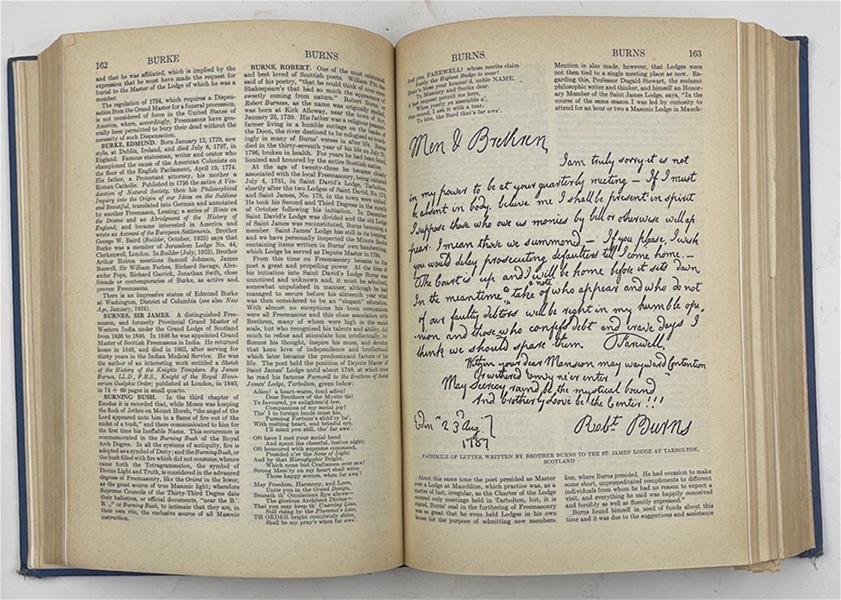 162 BURKE BURNS
and that he was affiliated, which is implied by the
expression that he must have made the request for
burial to the Master of the Lodge of which he was a
member.
The regulation of 1754, which requires a Dispen-
sation from the Grand Master for a funeral procession,
is not considered of force in the United States of
America, where, accordingly, Freemasons have gen-
erally been permitted to bury their dead without the
necessity of such Dispensation.
BURKE, EDMUND. Born January 12, 1729, new
style, at Dublin, Ireland, and died July 8, 1797, in
England. Famous statesman, writer and orator who
championed the cause of the American Colonists on
the floor of the English Parliament, April 19, 1774.
His father, a Protestant attorney, his mother a
Roman Catholic. Published in 1756 the satire A Vin-
dication of Natural Society, then his Philosophical
Inquiry into the Origin of our Ideas on the Sublime
and Beautiful, translated into German and annotated
by another Freemason, Lessing; a series of Hints on
the Drama and an Abridgment of the History of
England; and became interested in America and
wrote an Account of the European Settlements. Brother
George W. Baird (Builder, October, 1923) says that
Burke was a member of Jerusalem Lodge No. 44,
Clerkenwell, London. In Builder (July, 1923), Brother
Arthur Heiron mentions Samuel Johnson, James
Boswell, Sir William Forbes, Richard Savage, Alex-
ander Pope, Richard Garrick, Jonathan Swift, close
friends or contemporaries of Burke, as active and
proven Freemasons.
There is an impressive statue of Edmund Burke
at Washington, District of Columbia (see also New
Age, January, 1924).
BURNES, SIR JAMES. A distinguished Free-
mason, and formerly Provincial Grand Master of
Western India under the Grand Lodge of Scotland
from 1836 to 1846. In 1846 he was appointed Grand
Master of Scottish Freemasons in India. He returned
home in 1849, and died in 1862, after serving for
thirty years in the Indian Medical Service. He was
the author of an interesting work entitled a Sketch
of the History of the Knights Templars. By James
Burnes, LL.D., F.R.S., Knight of the Royal Hano-
verian Guelphic Order; published at London, in 1840,
in 74 + 60 pages in small quarto.
BURNING BUSH. In the third chapter of
Exodus it is recorded that, while Moses was keeping
the flock of Jethro on Mount Horeb, "the angel of the
Lord appeared unto him in a flame of fire out of the
midst of a bush," and there communicated to him for
the first time his Ineffable Name. This occurrence is
commemorated in the Burning Bush of the Royal
Arch Degree. In all the systems of antiquity, fire is
adopted as a symbol of Deity; and the Burning Bush, or
the bush filled with fire which did not consume, whence
came forth the Tetragrammaton, the symbol of
Divine Light and Truth, is considered in the advanced
degrees of Freemasonry, like the Orient in the lower,
as the great source of true Masonic light; wherefore
Supreme Councils of the Thirty-Third Degree date
their balustres, or official documents, "near the B.
B.," or Burning Bush, to intimate that they are, in
their own rite, the exclusive source of all Masonic
instruction.
BURNS, ROBERT. One of the most celebrated
and best loved of Scottish poets. William Pitt has
said of his poetry, "that he could think of none since
Shakespeare's that had so much the appearance of
sweetly coming from nature." Robert Burns, or
Robert Burness, as the name was originally spelled,
was born at Kirk Alloway, near the town of Ayr,
January 25, 1759. His father was a religious peasant
farmer living in a humble cottage on the banks of
the Doon, the river destined to be eulogized so touch-
ingly in many of Burns's verses in after life. He
died in the thirty-seventh year of his life on July 21,
1796, broken in health. For years he had been feted,
lionized and honored by the entire Scottish nation.
At the age of twenty-three he became closely
associated with the local Freemasonry, being initiated
July 4, 1781, in Saint David's Lodge, Tarbolton,
shortly after the two Lodges of Saint David, No. 174,
and Saint James, No. 178, in the town were united.
He took his Second and Third Degrees in the month
of October following his initiation. In December
of Saint David's Lodge was divided and the old Lodge
of Saint James was reconstituted, Burns becoming a
member. Saint James' Lodge has still in its keeping,
and we have personally inspected the Minute Books
containing items written in Burns's own handwriting,
which Lodge he served as Depute Master in 1784.
From this time on Freemasonry became to the
poet a great and propelling power. At the time of
his initiation into Saint David's Lodge Burns was
unnoticed and unknown and, it must be admitted,
somewhat unpolished in manner, although he had
managed to secure before his sixteenth year what
was then considered to be an "elegant" education.
With almost no exceptions his boon companions
were all Freemasons and this close association with
Brethren, many of whom were high in the social
scale, but who recognized his talents and ability, did
much to refine and stimulate him intellectually, in-
fluence his thought, inspire his muse, and develop
that keen love of independence and brotherhood
which later became the predominant factors of his
life. The poet held the position of Depute Master of
Saint James' Lodge until about 1788, at which time
he read his famous Farewell to the Brethren of Saint
James' Lodge, Tarbolton, given below:
Adieu! a heart-warm, fond adieu!
Dear Brothers of the Mystic tie!
Ye favoured, ye enlighten'd few,
Companions of my social joy!
Tho' I to foreign lands must hie,
Pursuing Fortune's slidd'ry ba',
With melting heart, and brimful eye,
I'll mind you still, tho' far awa'.
Oft have I met your social band
And spent the cheerful, festive night;
Oft honoured with supreme command,
Presided o'er the Sons of Light;
And by that Hieroglyphic Bright,
Which none but Craftsmen ever saw!
Strong Mem'ry on my heart shall write
Those happy scenes, when far awa'!
May Freedom, Harmony, and Love,
Unite you in the Grand Design,
Beneath th' Omniscient Eye above—
The glorious Architect Divine—
That you may keep th' Unerring Line,
Still rising by the Plummet's Law,
Till ORDER bright completely shine,
Shall be my pray'r when far awa'.
BURNS BURNS 163
And you, FAREWELL! whose merits claim
Justly the Highest Badge to wear!
Heav'n bless your honour'd, noble NAME,
To Masonry and Scotia dear.
A last request permit me here,
When yearly ye assemble a',
One round, I ask it with a tear,
To him, the Bard that's far awa'.
Mention is also made, however, that Lodges were
not then tied to a single meeting place as now. Re-
garding this, Professor Dugald Stewart, the eminent
philosophic writer and thinker, and himself an Honor-
ary Member of the Saint James Lodge, says, "In the
course of the same season I was led by curiosity to
attend for an hour or two a Masonic Lodge in Mauch-
Men & Brethren
I am truly sorry it is not
in my power to be at your quarterly meeting – If I must
be absent in body, believe me I shall be present in spirit
I suppose those who owe us monies by bill or otherwise will ap
pear. I mean those we summoned – If you please, I wish
you would delay prosecuting defaulters till I come home. –
The Court is up and I will be home before it sets down
In the meantime to take a note of who appear and who do not
of our faulty debtors will be right in my humble opi-
nion and those who confess debt and crave days I
think we should spare them Farewell
Within your dear Mansion may wayward Contention
Or withered Envy ne'er enter
May Secrecy round be the mystical bound
And brotherly Love be the Center!!!
Edn. 23 Aug.
1787
Robt. Burns
FACSIMILE OF LETTER WRITTEN BY BROTHER BURNS TO THE ST. JAMES' LODGE AT TARBOLTON,
SCOTLAND
About this same time the poet presided as Master
over a Lodge at Mauchline, which practice was, as a
matter of fact, irregular, as the Charter of the Lodge
covered only meetings held in Tarbolton, but, it is
stated, Burns' zeal in the furthering of Freemasonry
was so great that he even held Lodges in his own
house for the purpose of admitting new members.
line, where Burns presided. He had occasion to make
some short, unpremeditated compliments to different
individuals from whom he had no reason to expect a
visit, and everything he said was happily conceived
and forcibly as well as fluently expressed."
Burns found himself in need of funds about this
time and it was due to the suggestions and assistance